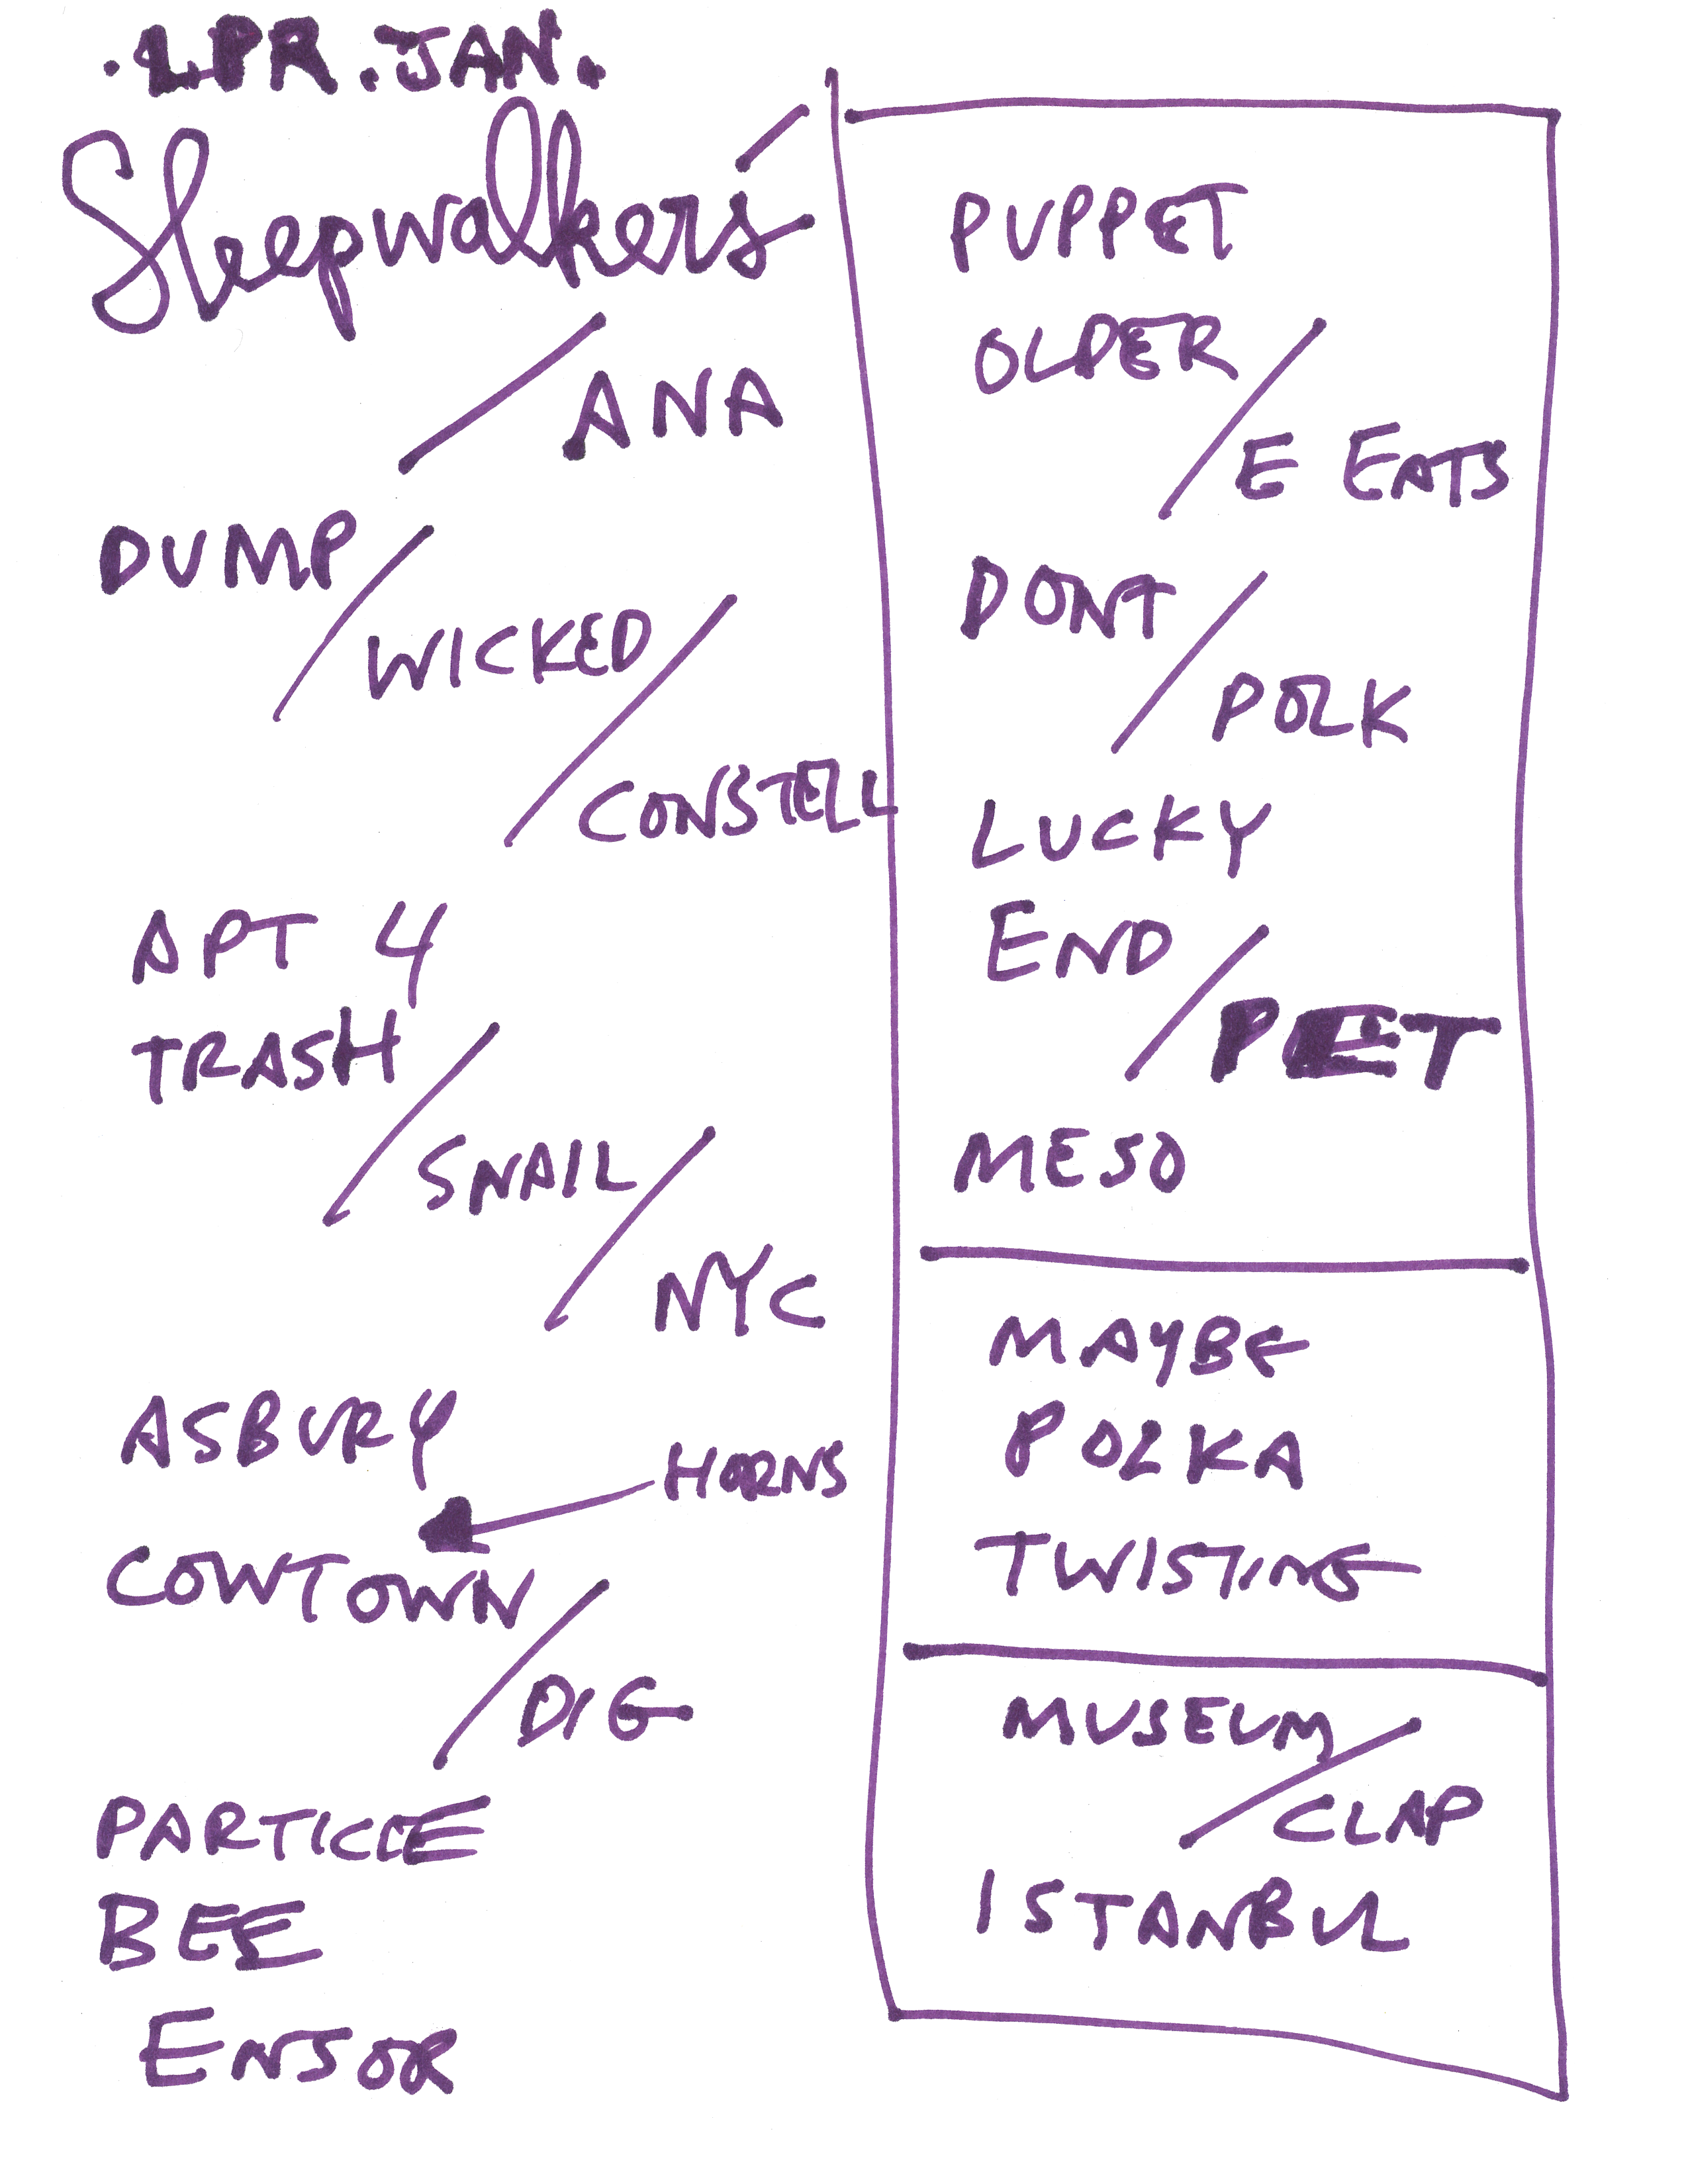 .LPR.JAN.
Sleepwalkers
/ ANA
DUMP
/ WICKED
/ CONSTELL
APT 4
TRASH
/ SNAIL
/ NYC
ASBURY
HORNS
COWTOWN
/ DIG
PARTICLE
BEE
ENSOR
PUPPET
OLDER
/ E EATS
DONT
/ PORK
LUCKY
END
/ PET
MESO
MAYBE
POLKA
TWISTING
MUSEUM
/ CLAP
ISTANBUL